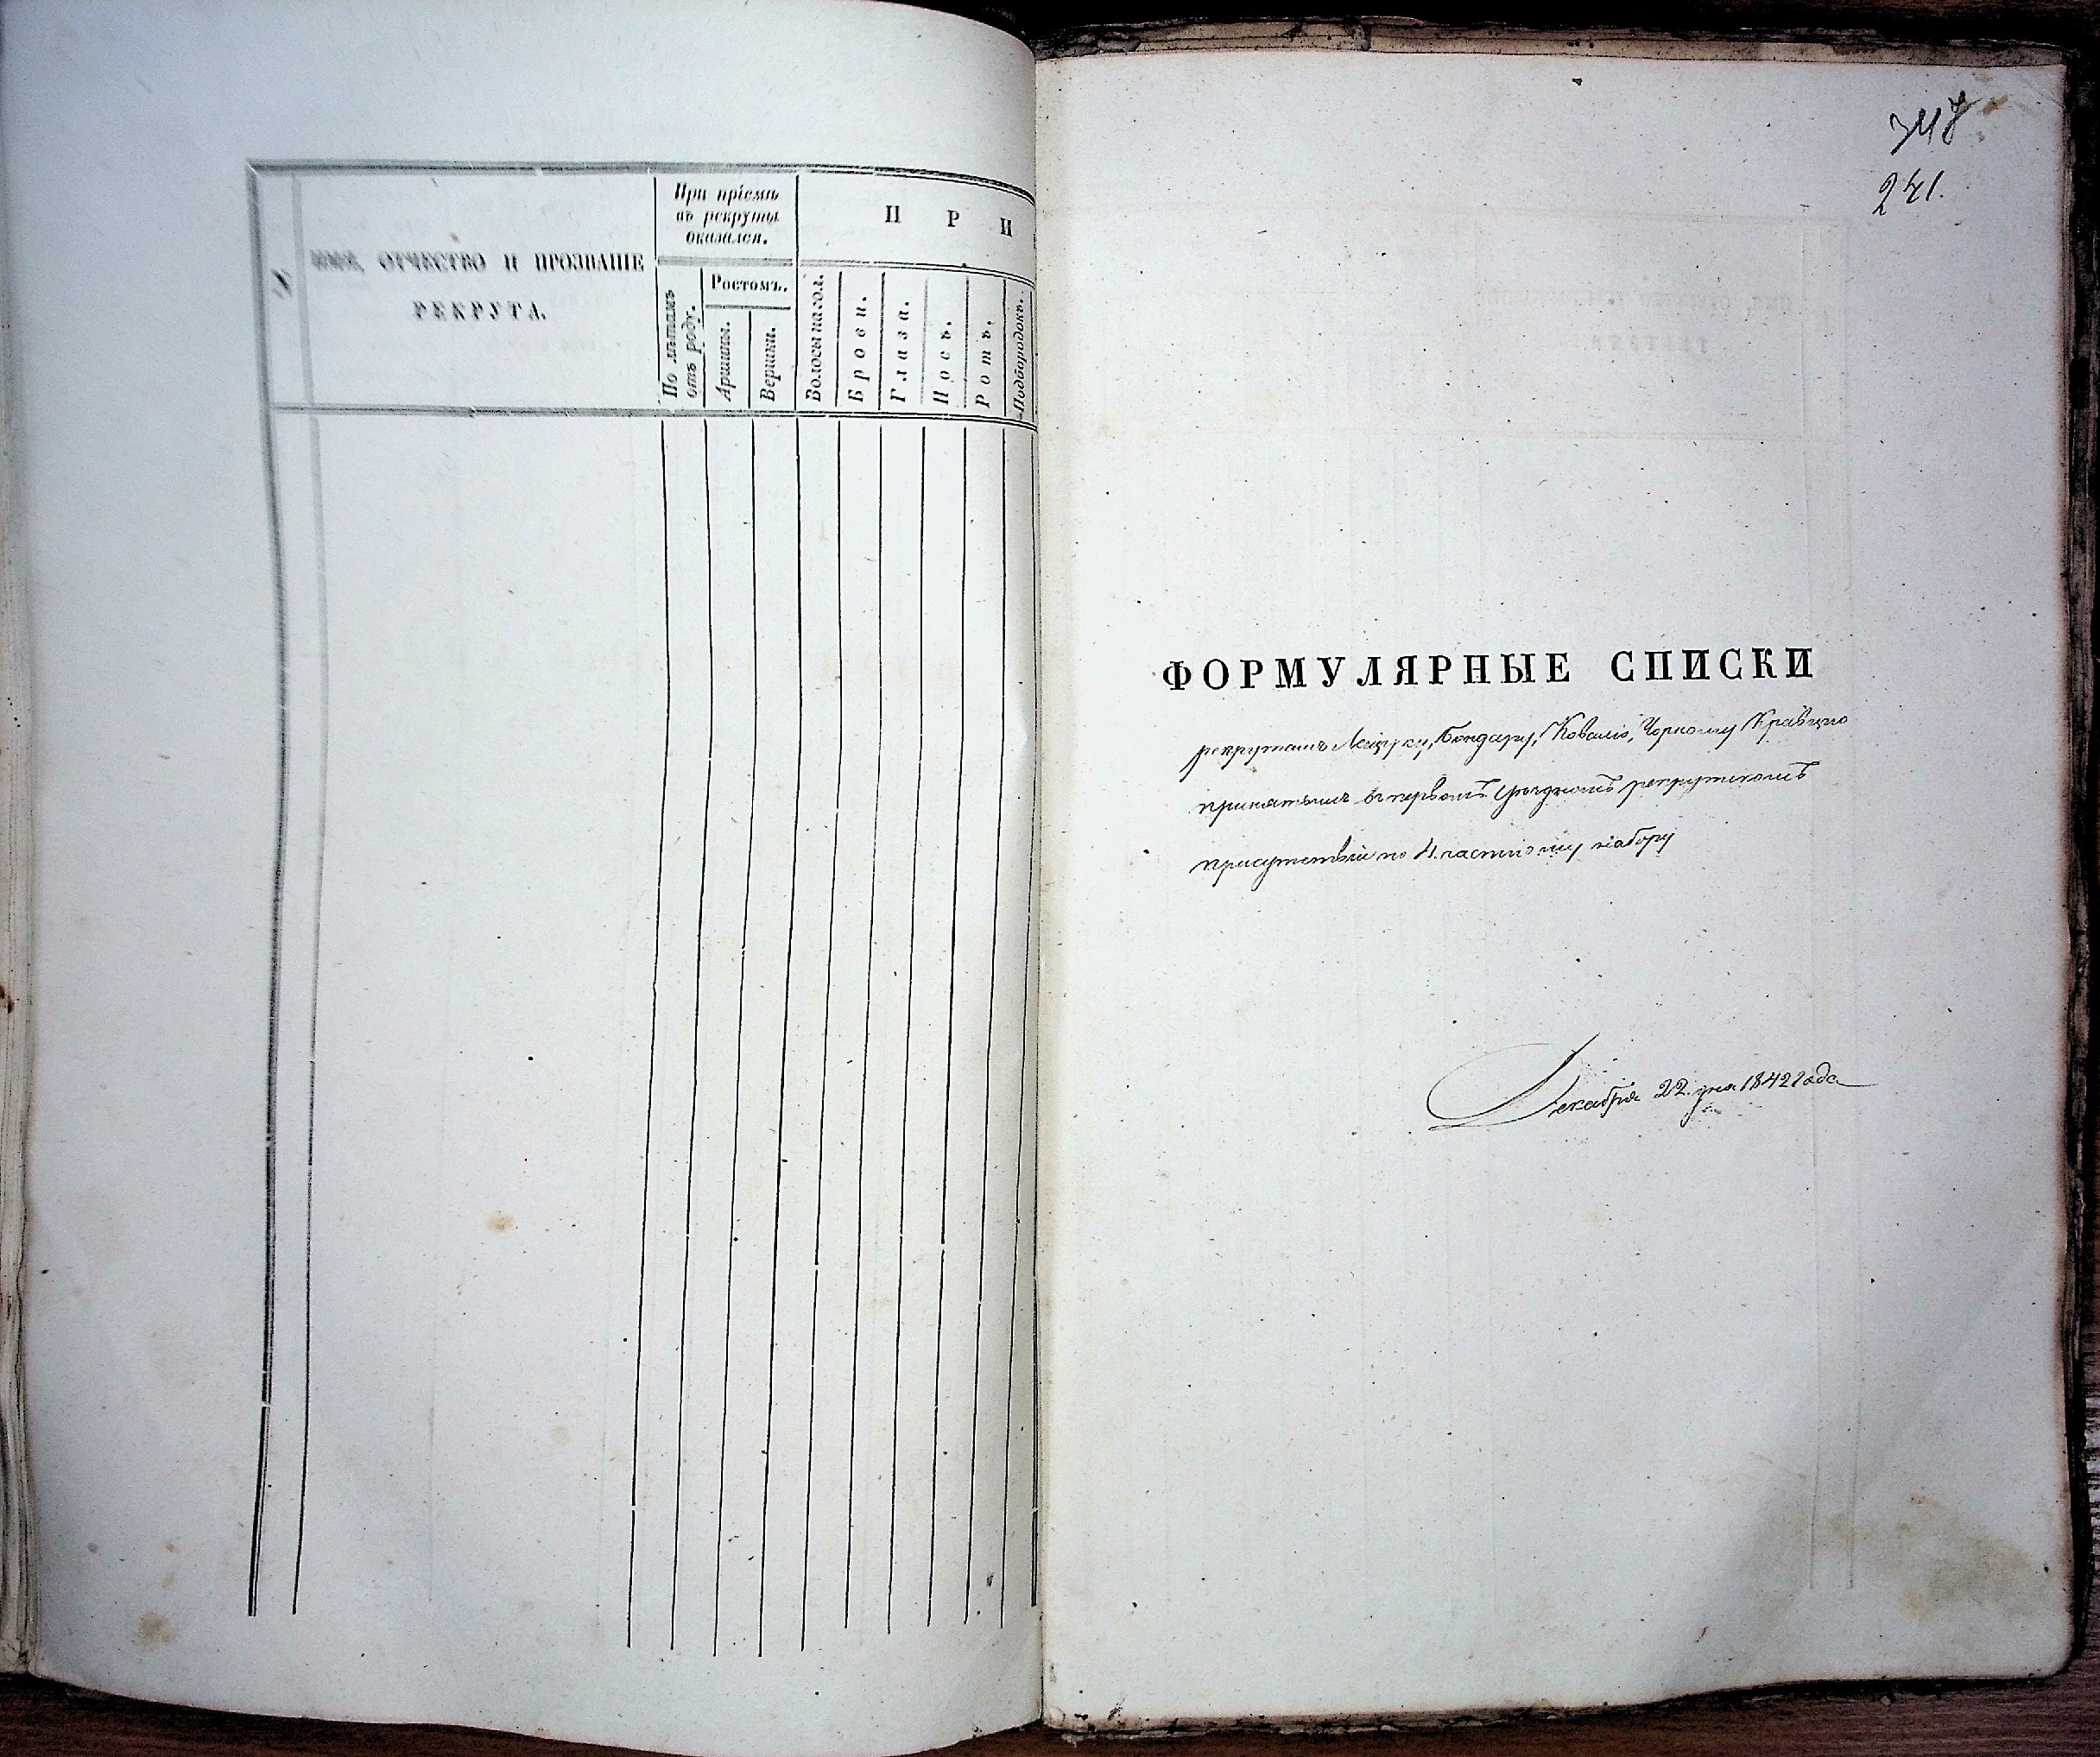 ИМЯ, ОТЧЕСТВО И ПРОЗВАНІЕ
РЕКРУТА.
При пріемѣ
въ рекруты
оказался.
По лѣтамъ
отъ роду.
Ростомъ.
Аршины.
Вершки.
П Р И
Волосы на гол.
Брови.
Глаза.
Носъ.
Ротъ.
Подбородокъ.
241.
ФОРМУЛЯРНЫЕ СПИСКИ
рекрутамъ Лещуку, Бондару, Ковалю, Чорному Кравцю
принятымъ в первомъ уѣздномъ рекрутскомъ
присутствіи по 4 частному набору
Декабря 22 дня 1842 года